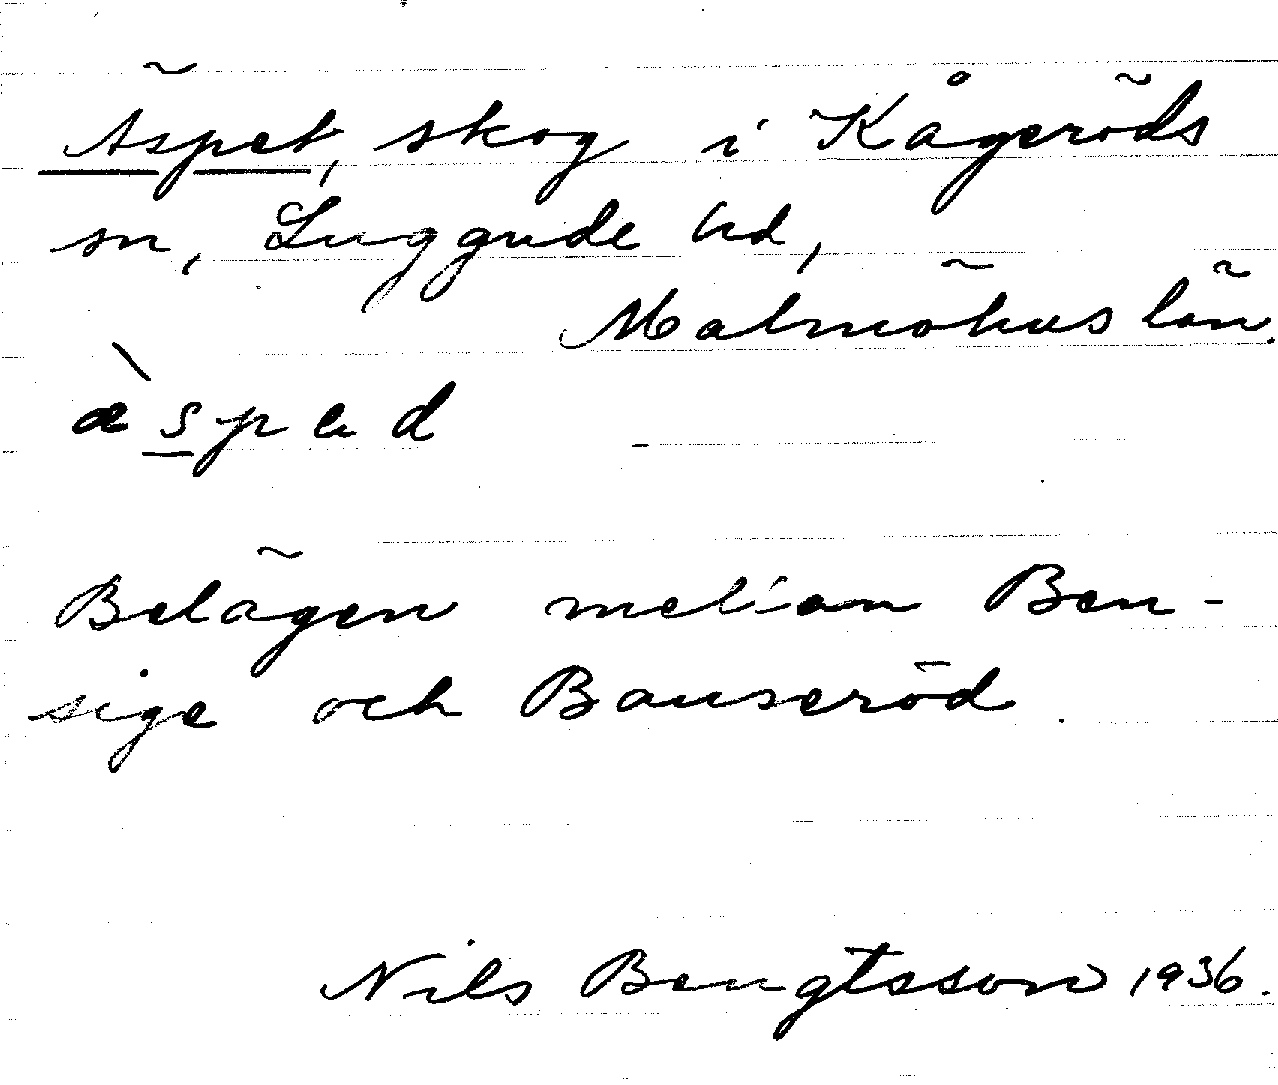 Äspet, skog i Kågeröds
sn, Luggude hd,
Malmöhus län.
æ̀sped
Belägen mellan Ben-
sige och Bauseröd.
Nils Bengtsson 1936.